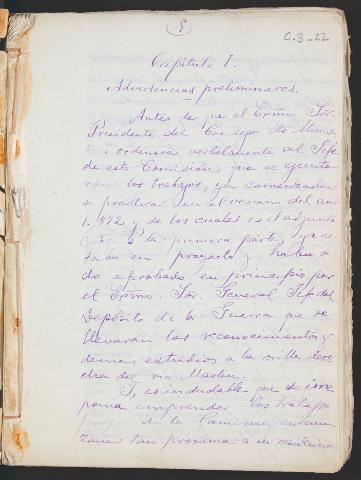 C.3-22
Capítulo I.
Advertencias preliminares.
Antes de que el Exmo. Sór.
Presidente del Consejo de Minis
ordenara verbalmente al Jefe
de esta Comisión que se ejecuta
ran los trabajos, ya comenzados
a practicar en el verano del año
1.892 y de los cuales es el adjunto
la primera parte, ya es
taba en proyecto y había si
do aprobado en principio por
el Exmo. Sór. General Jefe del
Depósito de la Guerra que se
llevaran los reconocimientos y
demás estudios a la orilla dere
cha del rio Martin.
Y, es indudable que se im
ponia emprender los trabajos
de la Comisión en una
zona tan próxima a su residencia